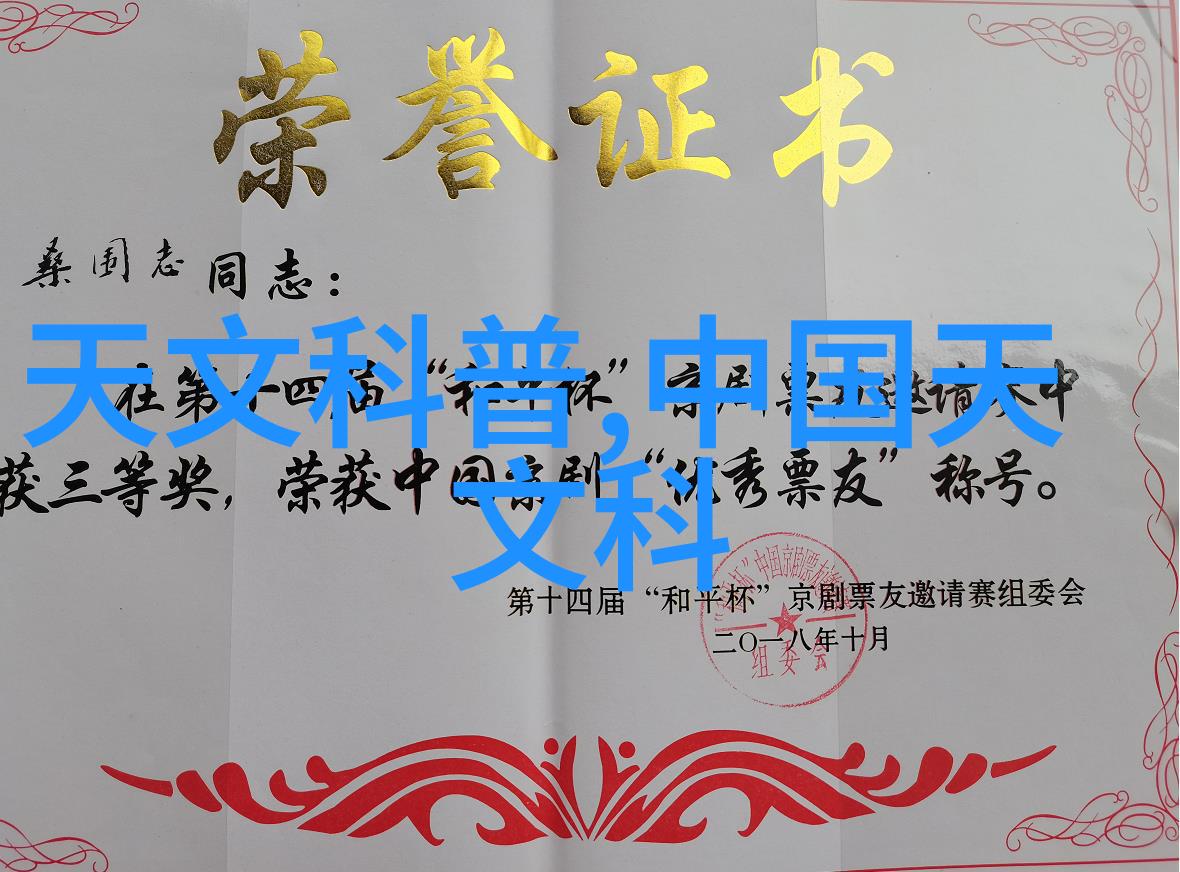 荣誉证书
桑国志 同志：
天文科普,中国天
文科
在第十四届“和平杯”京剧票友邀请赛中
获三等奖，荣获中国京剧“优秀票友”称号。
第十四届“和平杯”京剧票友邀请赛组委会
二〇一八年十月
组委会